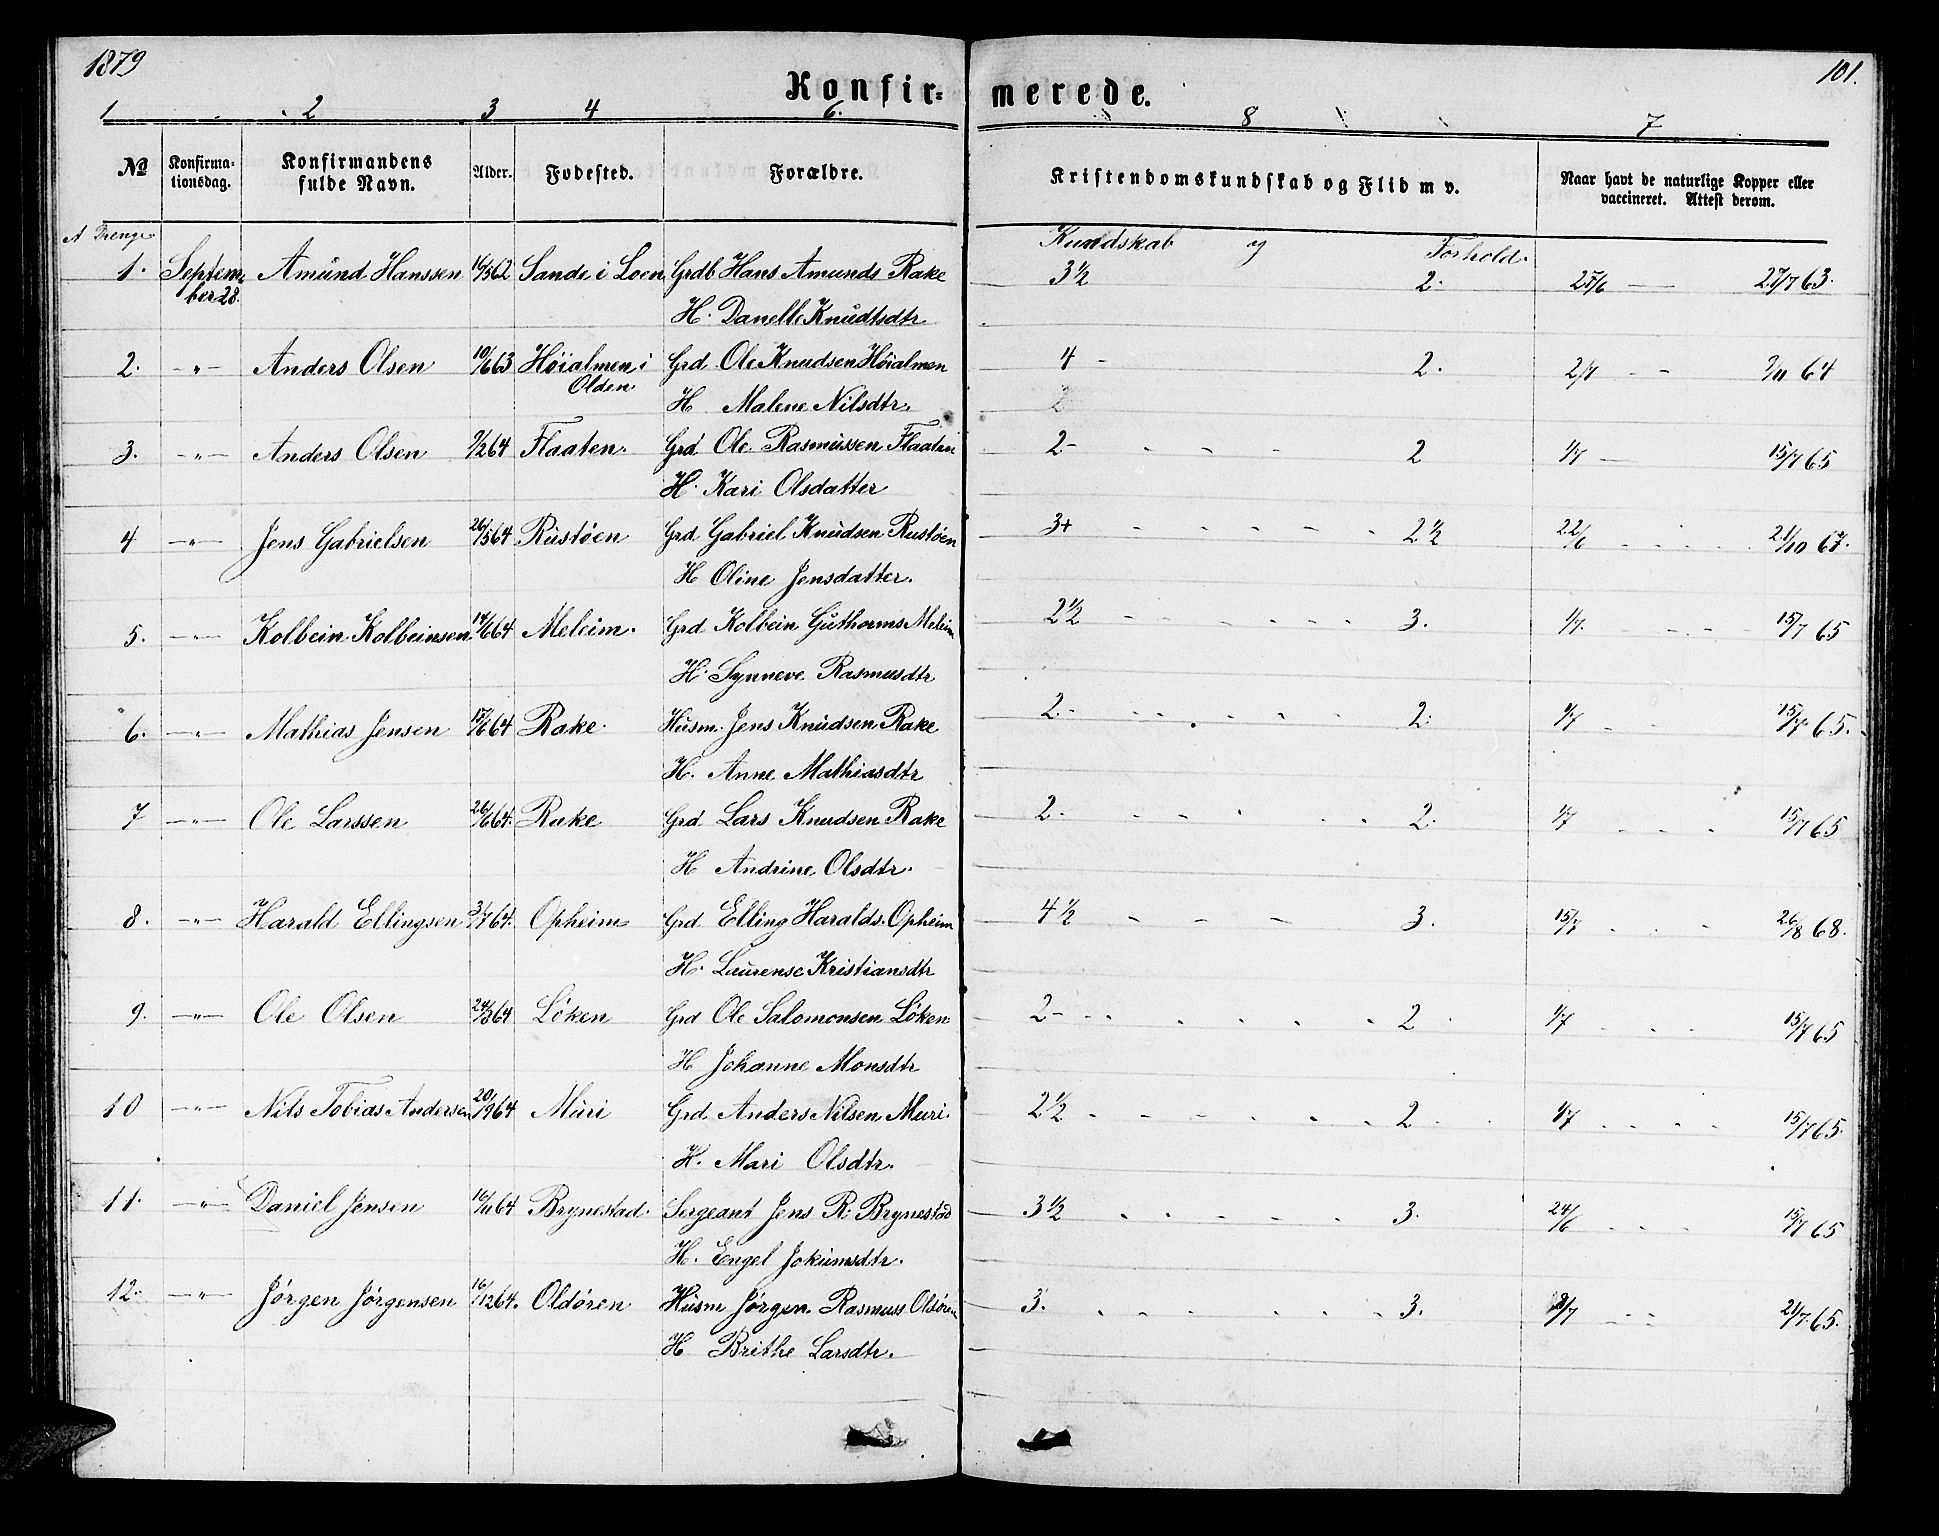 1879
101.
Konfir= merede.
1 2 3 4 6. 8 7
No Konfirma-tionsdag. Konfirmandens fulde Navn. Alder. Fodested. Forældre. Kristendomskundskab og Flid m v. Naar havt de naturlige Kopper eller vaccineret. Attest derom.
A Drenge Kundskab og Forhold.
1. Septem- Amund Hanssen 62 Sande i Loen Grdb Hans Amunds Rake 3 1/2 2. 63.
ber 28. H. Danelle Knudtsdtr
2. -"- Anders Olsen 10/6 63 Höialmen i Grd. Ole Knudsen Höialmen 4 - 2. 2/7 64
Olden H Malene Nilsdtr.
3. -"- Anders Olsen 9/2 64 Flaaten. Grd Ole Rasmussen Flaaten 2- 2 1/7 15/7 65
H. Kari Olsdatter
4 -"- Jens Gabrielsen 26/5 64 Rustöen Grd Gabriel Knudsen Rustöen 3+ 2 1/2 22/6 21/10 67.
H Oline Jensdatter.
5. -"- Kolbein Kolbeinsen 14/6 64 Meleim. Grd Kolbein Guthorms Meleim 2 1/2 3. 1/7. 15/7 65
H. Synneve Rasmusdtr
6. -"- Mathias Jensen 15/6 64 Rake. Husm. Jens Knudsen Rake 2.- 2. 1/7 15/7 65.
H. Anne Mathiasdtr
7 -"- Ole Larssen 26/6 64. Rake Grd Lars Knudsen Rake 2. 2. 1/7 15/7 65
H Andrine Olsdtr.
8. -"- Harald Ellingsen 3/7 64. Opheim Grd Elling Haralds. Opheim 4 1/2 3. 15/7 26/8 68.
H. Laurense Kristiansdtr
9. -"- Ole Olsen 24/8 64 Löken Grd Ole Salomonsen Löken 2- 2 1/7 15/7 65
H Johanne Monsdtr
10 -"- Nils Tobias Andersen 20/9 64 Muri Grd. Anders Nilsen Muri. 2 1/2 2 1/7 15/7 65.
H. Mari Olsdtr.
11. -"- Daniel Jensen 16/11 64 Brynestad. Sergeant Jens R. Brynestad 3 1/2 3. 24/6 15/7 65
H. Engel Jokumsdtr.
12. -"- Jörgen Jörgensen 16/12 64. Oldören Husm Jörgen Rasmuss Oldören 3. 3. 21/7 65.
H Brithe Larsdtr.